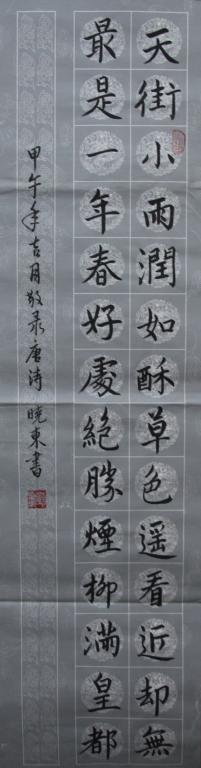 天街小雨潤如酥草色遥看近却無
最是一年春好處絕勝煙柳滿皇都
甲午年吉月敬录唐诗 晓東書